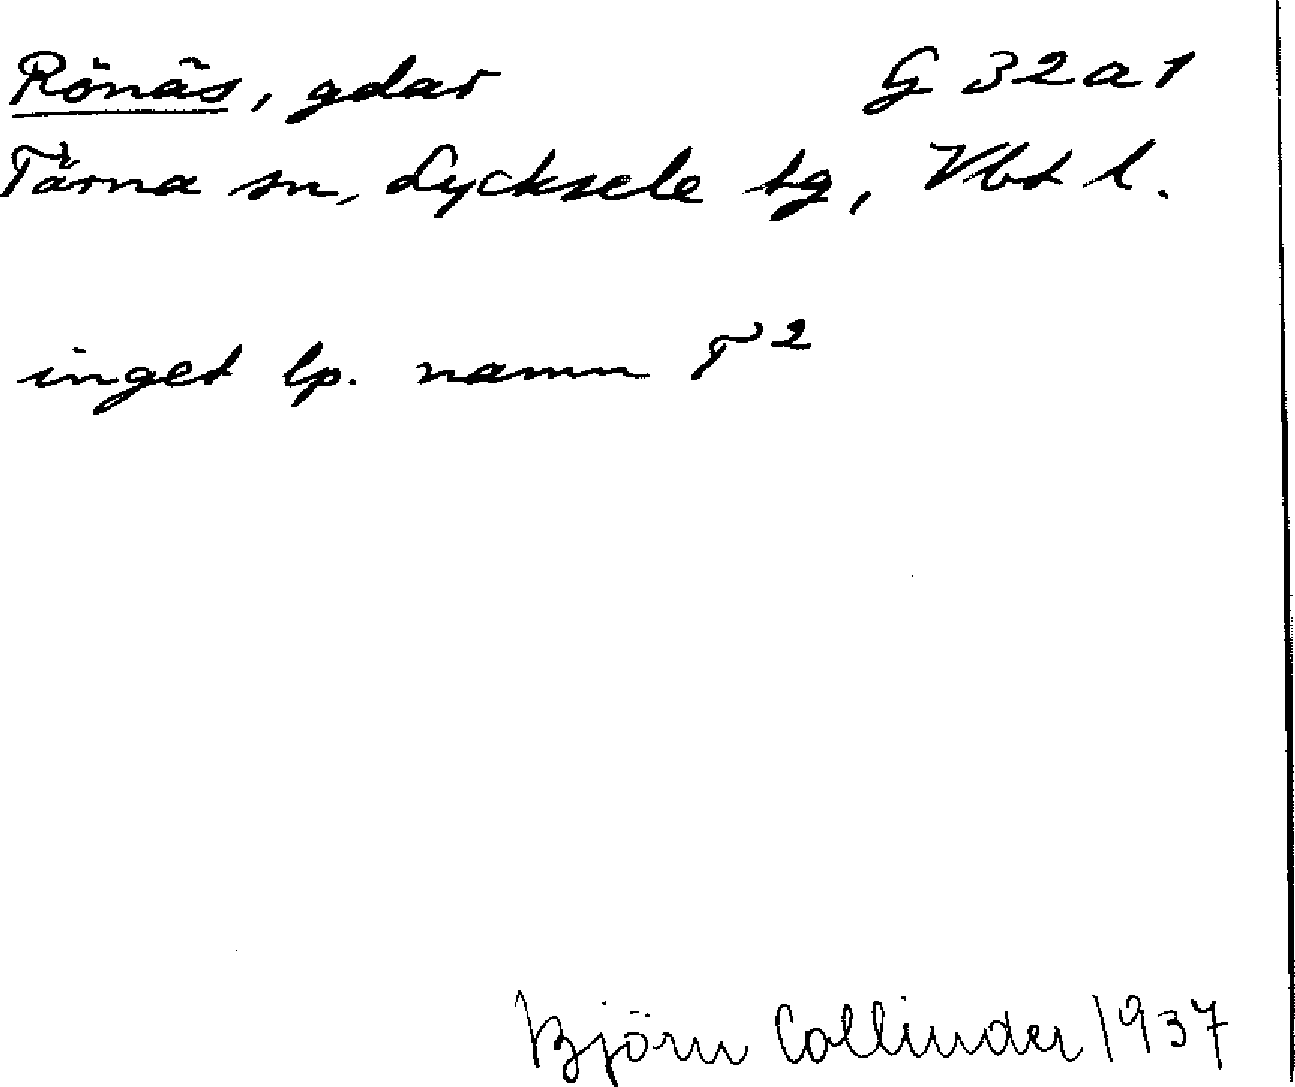 Rönäs, gdar G 32a1
Tärna sn, Lycksele tg, Vbt l.
inget lp. namn T²
Björn Collinder 1937